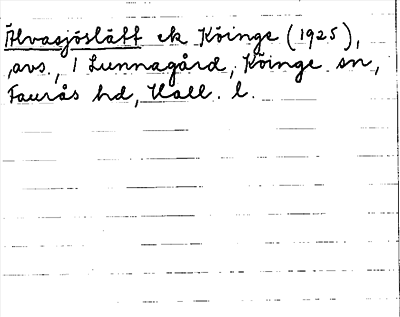 Älvasjöslätt ek Köinge (1925),
avs., 1 Lunnagård, Köinge sn,
Faurås hd, Hall. l.